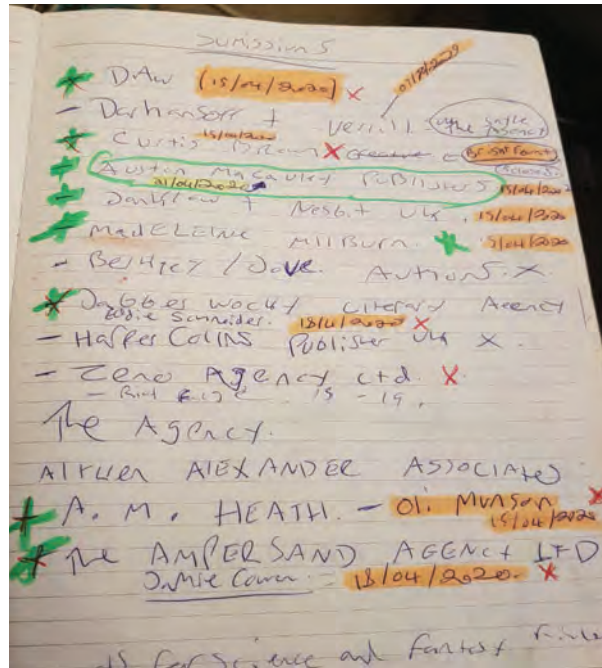 Sumissions
DAW (15/04/2020) X
07/04/2020
- Darhansoff + Verrill
The Agency
15/04/2020
Curtis Brown X Creative
Bright Point
Austin Macauley Publishers 15/04/202
21/04/2020
Janklow + Nesbit UK. 15/04/2020
- MadELEINE MILBURN. 15/04/2020
- Berkley / Dove. Authors. X
Jabberwocky Literary Agency
Eddie Schneider. 18/4/2020 X
- Harper Collins Publisher UK X
- Zeno Agency Ltd. X
The Agency.
AITKEN ALEXANDER ASSOCIATES
A. M. HEATH. - Oli Munson X
15/04/2020
The AMPERSAND AGENCY LTD
Jamie Cowen - 18/04/2020 X
for Science and Fantasy